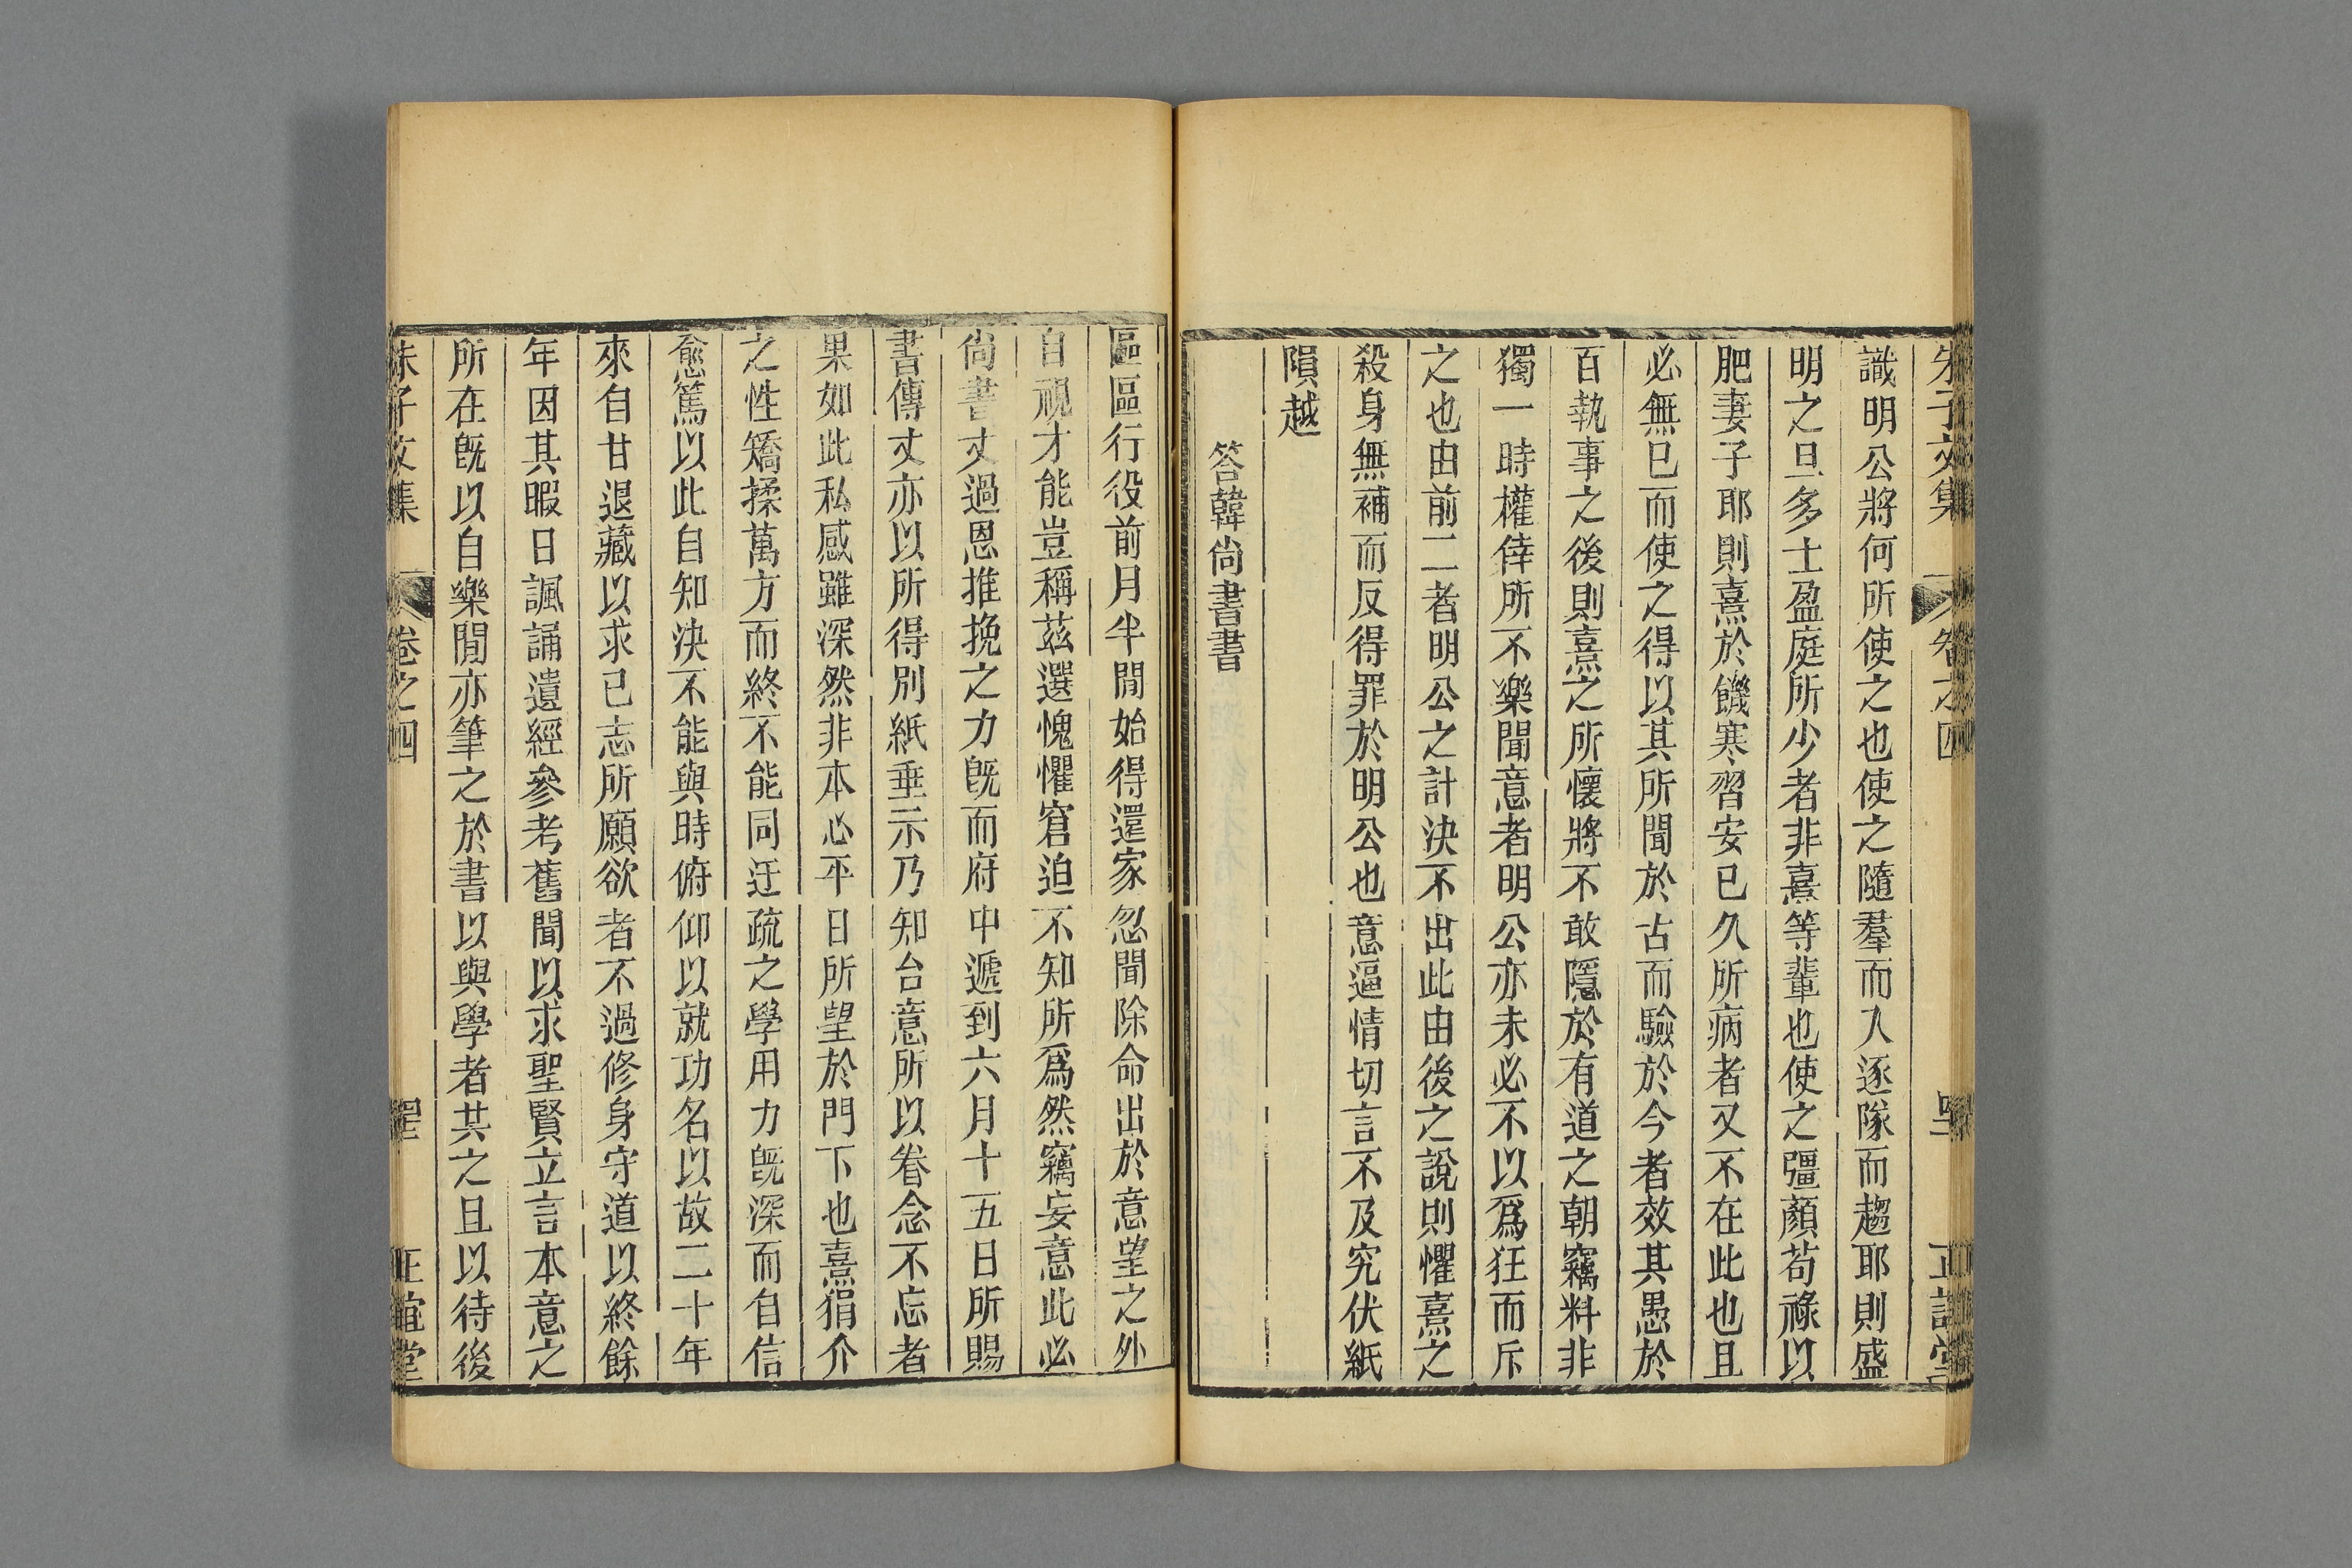 朱子文集 卷之四 正誼堂
識明公將何所使之也使之隨羣而入逐隊而趨耶則盛
明之旦多士盈庭所少者非熹等輩也使之彊顏苟祿以
肥妻子耶則熹於饑寒習安已久所病者又不在此也且
必無已而使之得以其所聞於古而驗於今者效其愚於
百執事之後則熹之所懷將不敢隱於有道之朝竊料非
獨一時權倖所不樂聞意者明公亦未必不以爲狂而斥
之也由前二者明公之計決不出此由後之說則懼熹之
殺身無補而反得罪於明公也意逼情切言不及究伏紙
隕越
答韓尚書書
區區行役前月半間始得還家忽聞除命出於意望之外
自視才能豈稱茲選愧懼窘迫不知所爲然竊妄意此必
尚書丈過恩推挽之力旣而府中遞到六月十五日所賜
書傳丈亦以所得別紙垂示乃知台意所以眷念不忘者
果如此私感雖深然非本心平日所望於門下也熹狷介
之性矯揉萬方而終不能同迂疏之學用力旣深而自信
愈篤以此自知決不能與時俯仰以就功名以故二十年
來自甘退藏以求己志所願欲者不過修身守道以終餘
年因其暇日諷誦遺經參考舊聞以求聖賢立言本意之
所在旣以自樂間亦筆之於書以與學者共之且以待後
朱子文集 卷之四 正誼堂